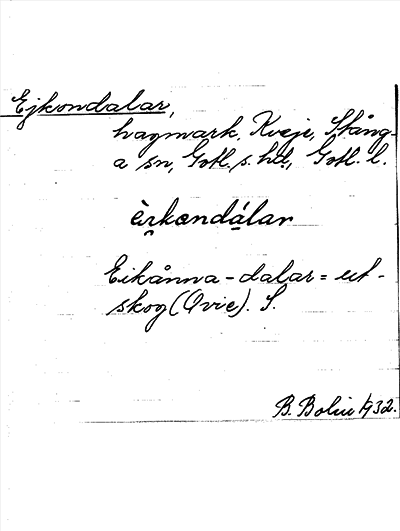 Ejkondalar,
hagmark, Kveje, Stång-
a sn, Gotl. s. hd., Gotl. l.
èi̯kəndá̱lar
Eikånna-dalar = ut-
skog (Qvie). S.
B. Bolin 1932.